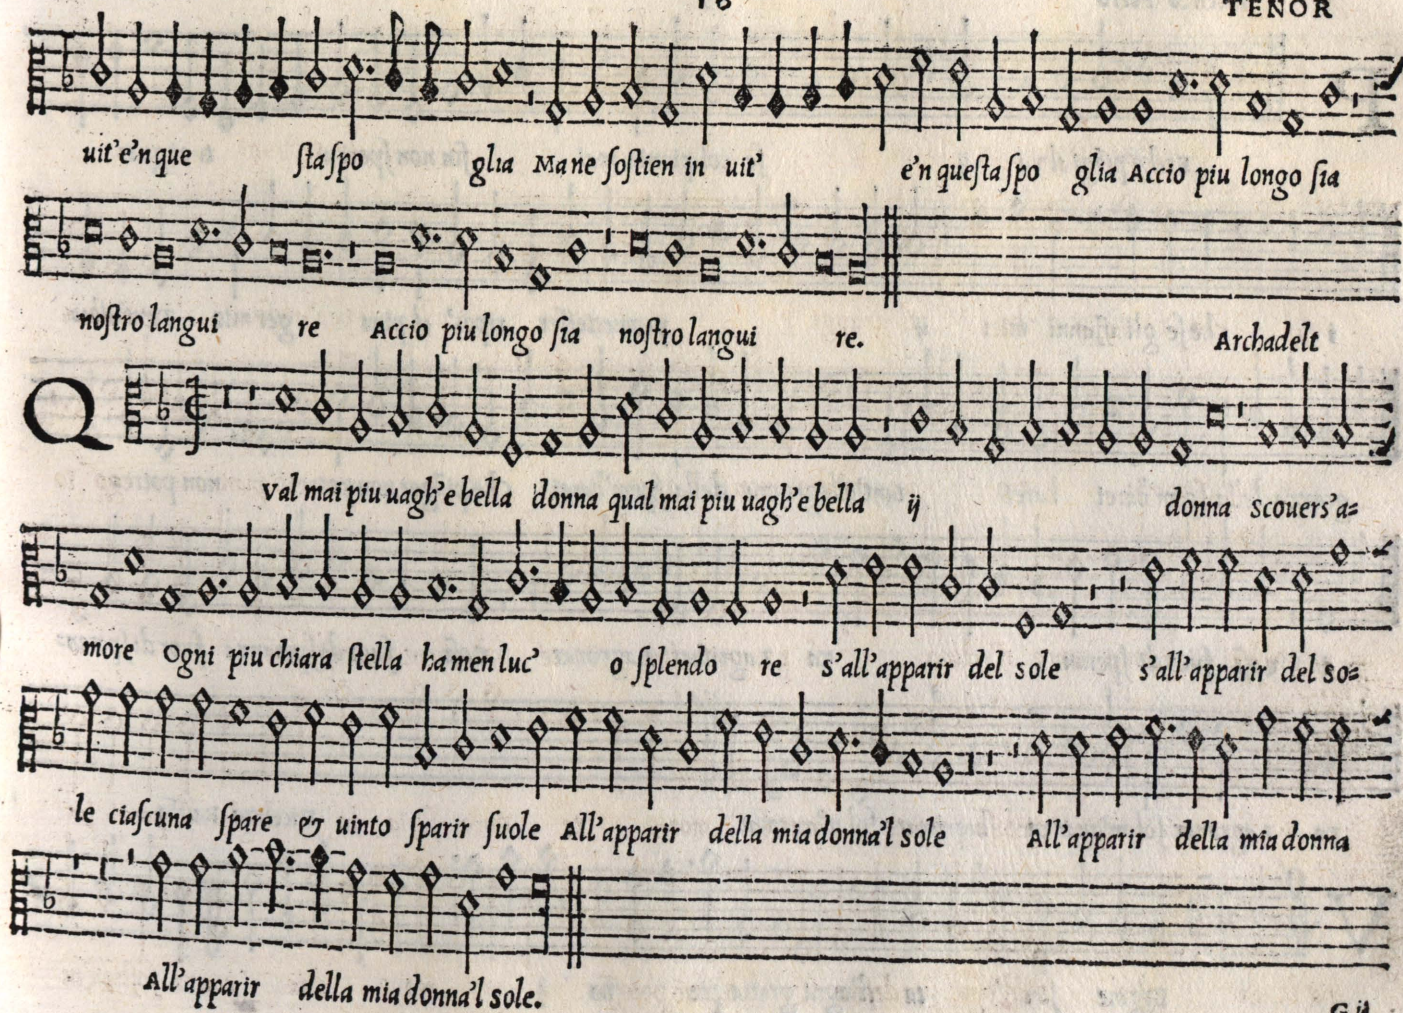 TENOR
uit'e'n que ſta ſpo glia Ma ne ſoſtien in uit' e'n queſta ſpo glia Accio piu longo ſia
noſtro langui re Accio piu longo ſia noſtro langui re. Archadelt
Qval mai piu uagh'e bella donna qual mai piu uagh'e bella ij donna Scouers'a=
more Ogni piu chiara ſtella ha men luc' o ſplendo re S'all'apparir del Sole S'all'apparir del So=
le ciaſcuna ſpare & uinto ſparir ſuole All'apparir della mia donna'l Sole All'apparir della mia donna
All'apparir della mia donna'l Sole.
G ij